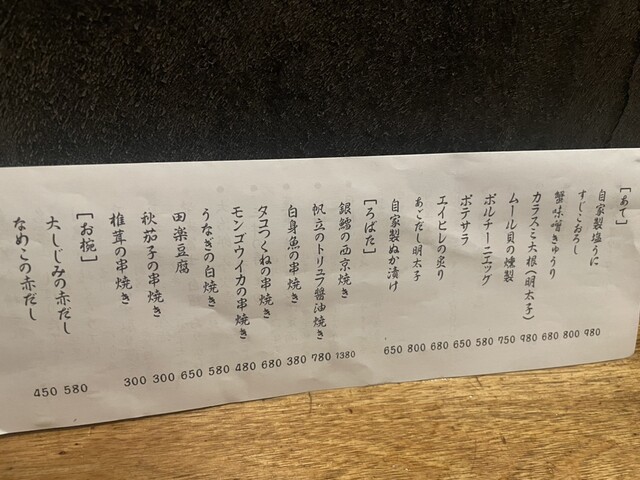 [あて]
自家製塩うに 980
すじこおろし 800
蟹味噌きゅうり 680
カラスミ大根(明太子) 980
ムール貝の燻製 750
ポルチーニエッグ 580
ポテサラ 650
エイヒレの炙り 680
あごだし明太子 800
自家製ぬか漬け 650
[ろばた]
銀鱈の西京焼き 1380
帆立のトリュフ醤油焼き 780
白身魚の串焼き 380
タコつくねの串焼き 680
モンゴウイカの串焼き 480
うなぎの白焼き 580
田楽豆腐 650
秋茄子の串焼き 300
椎茸の串焼き 300
[お椀]
大しじみの赤だし 580
なめこの赤だし 450